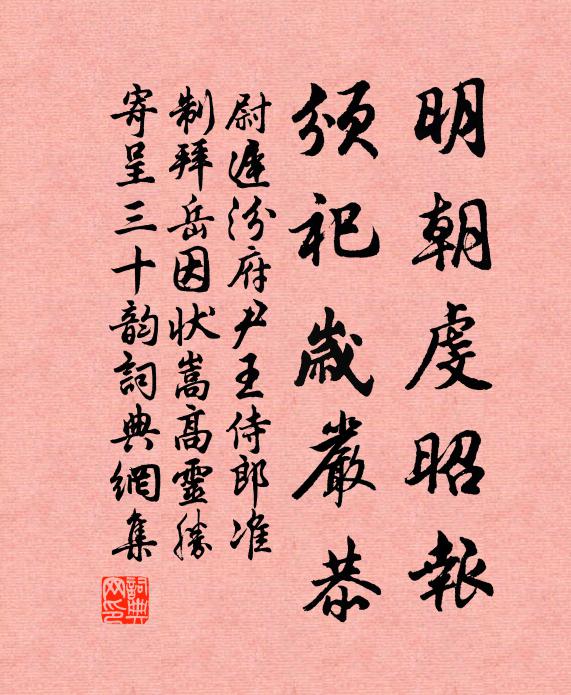 明朝虔昭報
頒祀歲嚴恭
尉遲汾府尹王侍郎准
制拜岳因狀嵩高靈勝
寄呈三十韵詞典網集